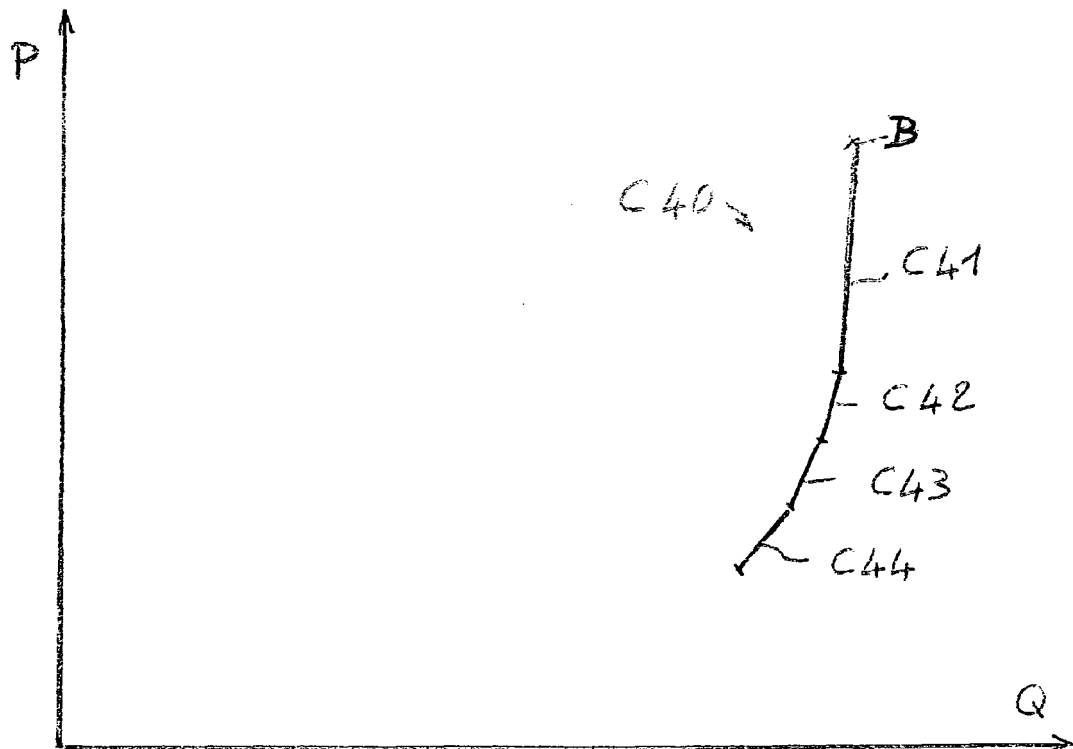 P
B
C40
C41
C42
C43
C44
Q